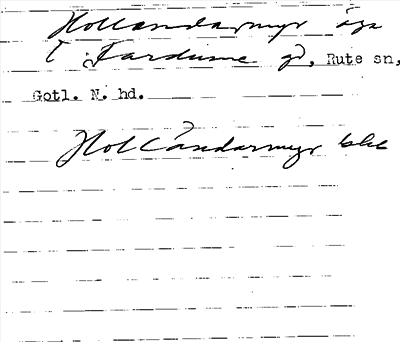 Hollandarmyr äga
t Fardume gd, Rute sn,
Gotl. N. hd.
Holländarmyr